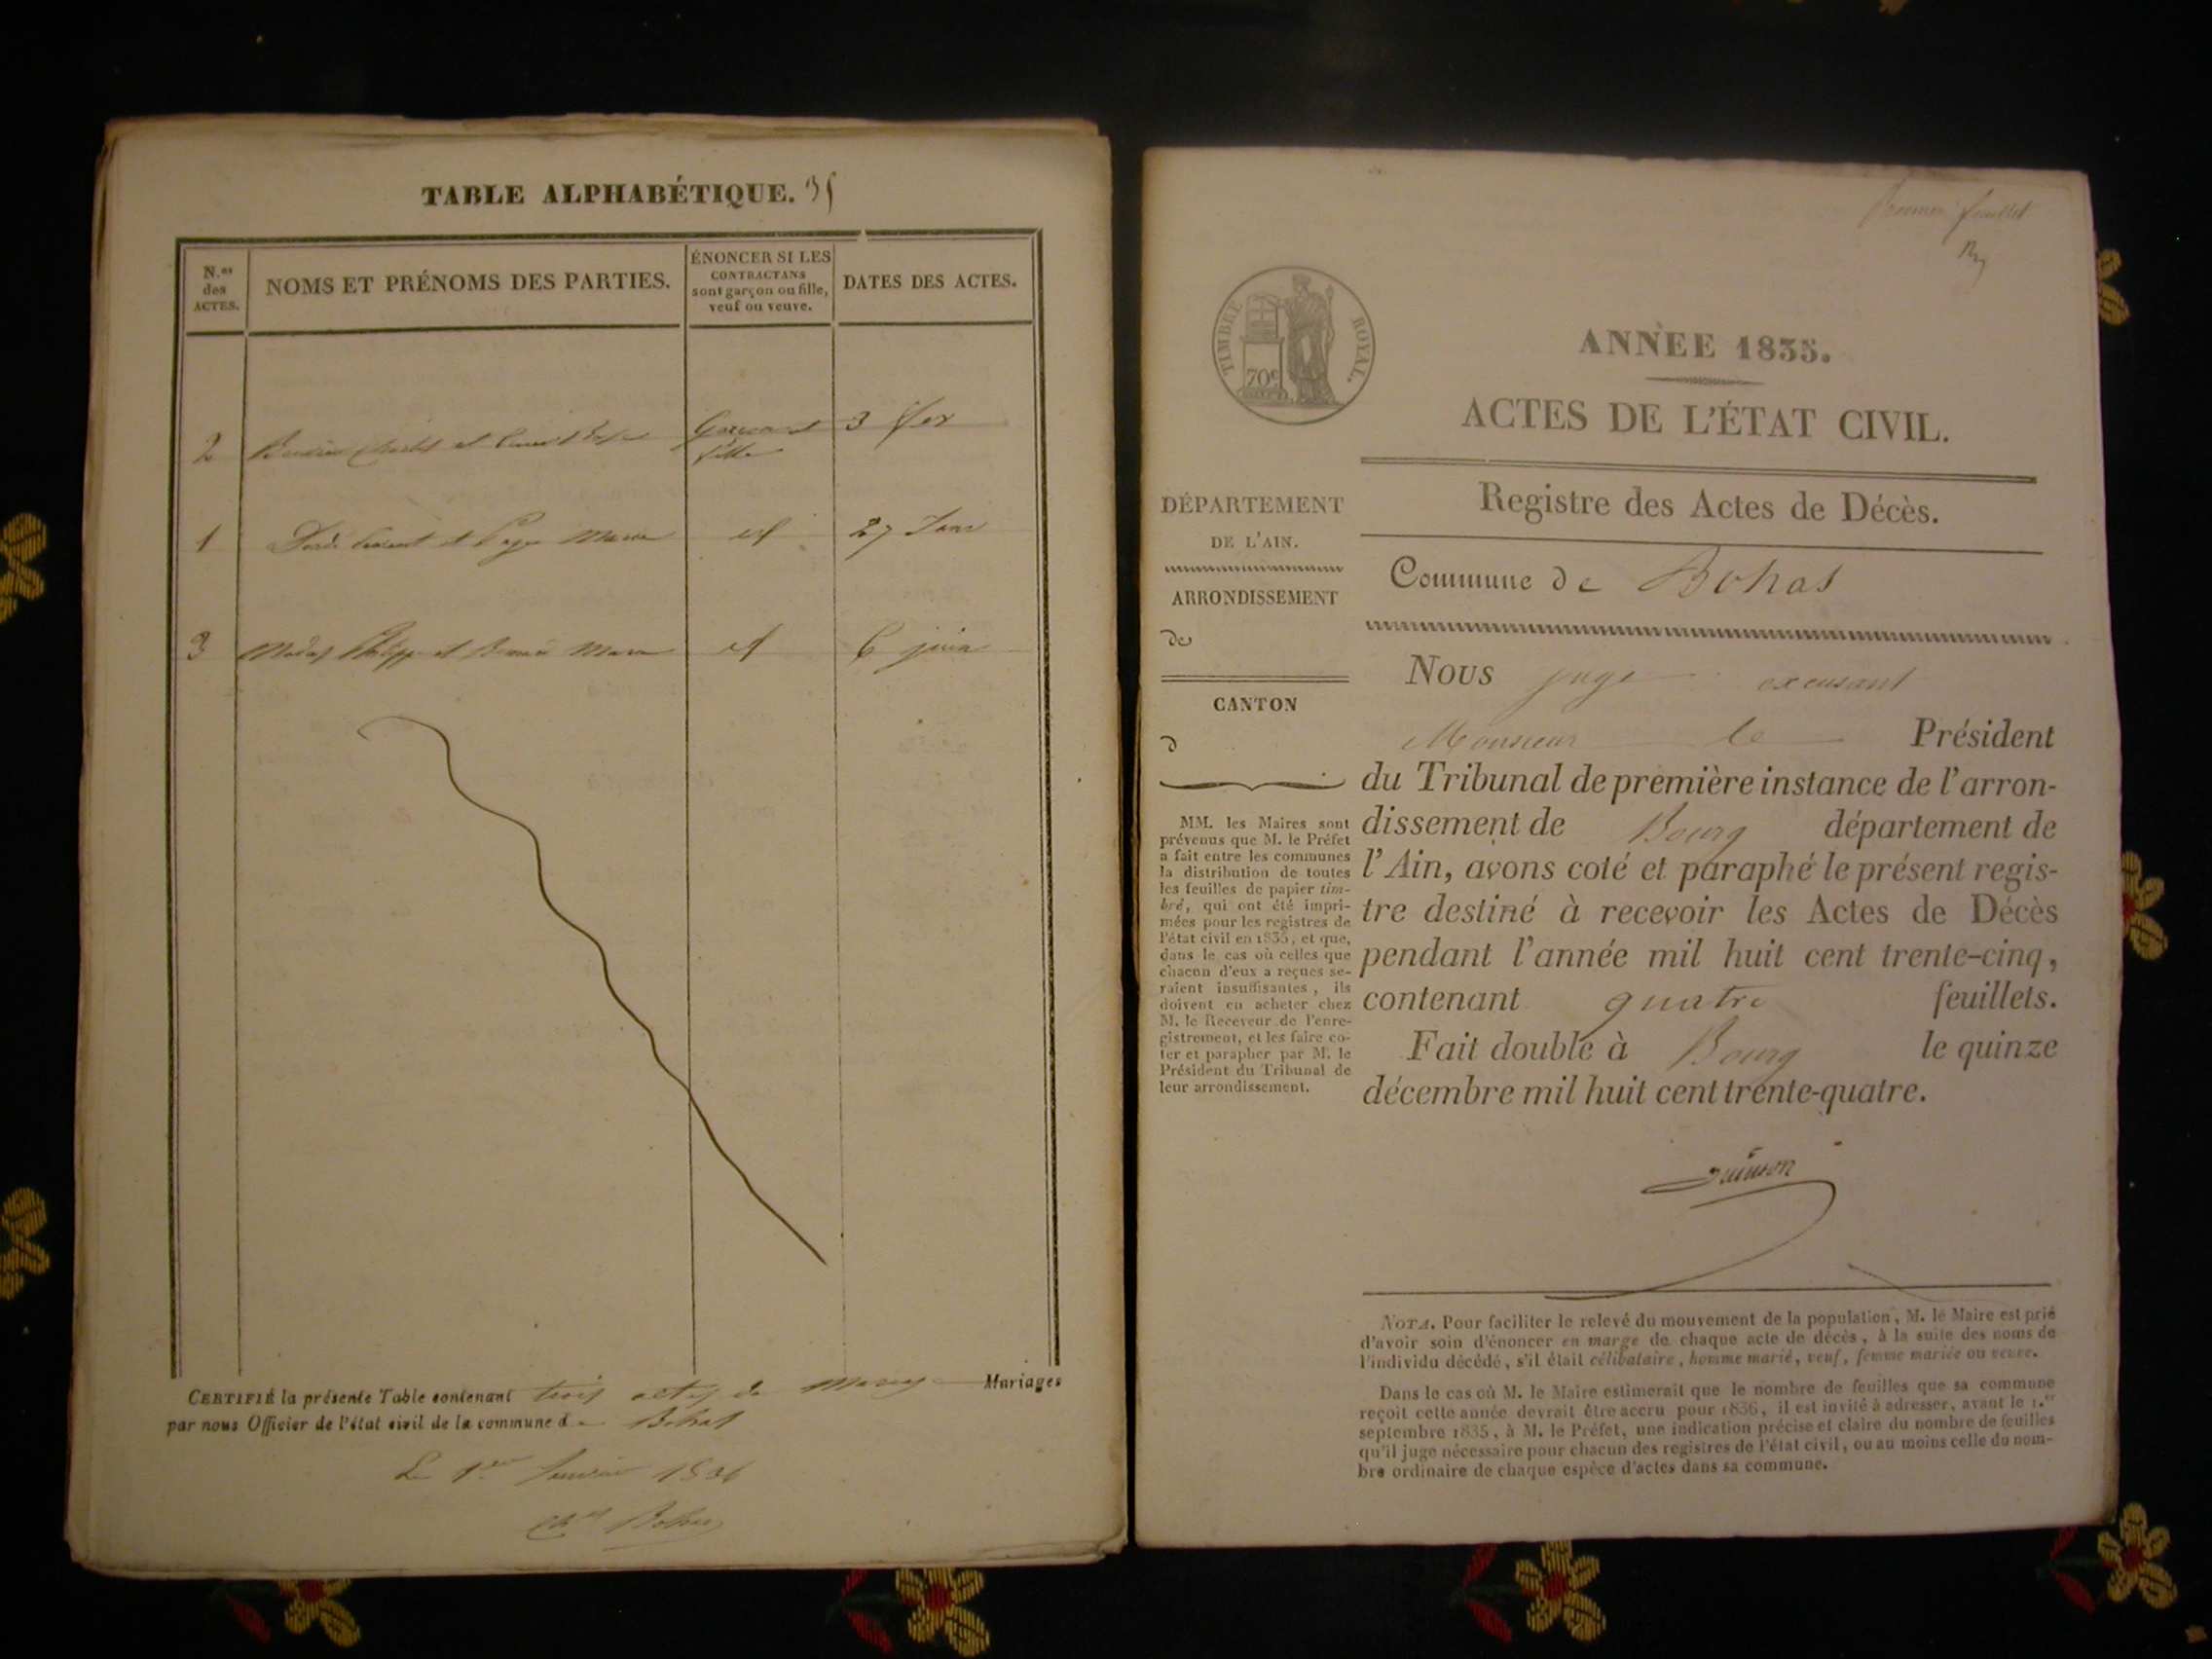 TABLE ALPHABÉTIQUE. 35
N.os des ACTES.
NOMS ET PRÉNOMS DES PARTIES.
ÉNONCER SI LES
CONTRACTANS
sont garçon ou fille,
veuf ou veuve.
DATES DES ACTES.
2 Charles et garçon et 3 fer
fille
1 et Marie id 27 Janv
3 Philippe et Marie id 6 juin
CERTIFIÉ la présente Table contenant trois actes de Mariages
par nous Officier de l'état civil de la commune de Bohas
Le 1er Janvier 1836
Premier feuillet
TIMBRE ROYAL.
70c
ANNÉE 1835.
ACTES DE L'ÉTAT CIVIL.
Registre des Actes de Décès.
Commune de Bohas
DÉPARTEMENT
DE L'AIN.
ARRONDISSEMENT
de
CANTON
d
MM. les Maires sont
prévenus que M. le Préfet
a fait entre les communes
la distribution de toutes
les feuilles de papier tim-
bré, qui ont été impri-
mées pour les registres de
l'état civil en 1835, et que,
dans le cas où celles que
chacun d'eux a reçues se-
raient insuffisantes, ils
doivent en acheter chez
M. le Receveur de l'enre-
gistrement, et les faire co-
ter et parapher par M. le
Président du Tribunal de
leur arrondissement.
Nous juge excusant
Monsieur le Président
du Tribunal de première instance de l'arron-
dissement de Bourg département de
l'Ain, avons coté et paraphé le présent regis-
tre destiné à recevoir les Actes de Décès
pendant l'année mil huit cent trente-cinq,
contenant quatre feuillets.
Fait double à Bourg le quinze
décembre mil huit cent trente-quatre.
NOTA. Pour faciliter le relevé du mouvement de la population, M. le Maire est prié
d'avoir soin d'énoncer en marge de chaque acte de décès, à la suite des noms de
l'individu décédé, s'il était célibataire, homme marié, veuf, femme mariée ou veuve.
Dans le cas où M. le Maire estimerait que le nombre de feuilles que sa commune
reçoit cette année devrait être accru pour 1836, il est invité à adresser, avant le 1.er
septembre 1835, à M. le Préfet, une indication précise et claire du nombre de feuilles
qu'il juge nécessaire pour chacun des registres de l'état civil, ou au moins celle du nom-
bre ordinaire de chaque espèce d'actes dans sa commune.